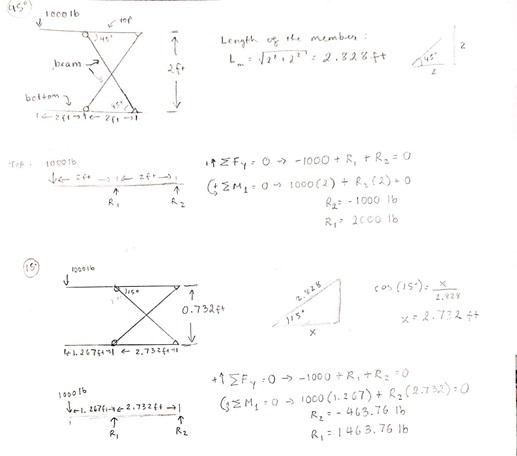 45°
1000 lb
top
45°
beam
2ft
bottom
45°
2ft
2ft
Length of the member:
L_m = √(2² + 2²) = 2.828 ft
45°
2
2
Top:
1000 lb
2ft
2ft
R₁
R₂
+↑ ΣFy = 0 → -1000 + R₁ + R₂ = 0
ΣM₁ = 0 → 1000(2) + R₂(2) = 0
R₂ = -1000 lb
R₁ = 2000 lb
15°
1000 lb
15°
0.732ft
1.267ft
2.732ft
2.828
15°
x
cos(15°) = x/2.828
x = 2.732 ft
1000 lb
1.267ft
2.732ft
R₁
R₂
+↑ ΣFy = 0 → -1000 + R₁ + R₂ = 0
ΣM₁ = 0 → 1000(1.267) + R₂(2.732) = 0
R₂ = -463.76 lb
R₁ = 1463.76 lb